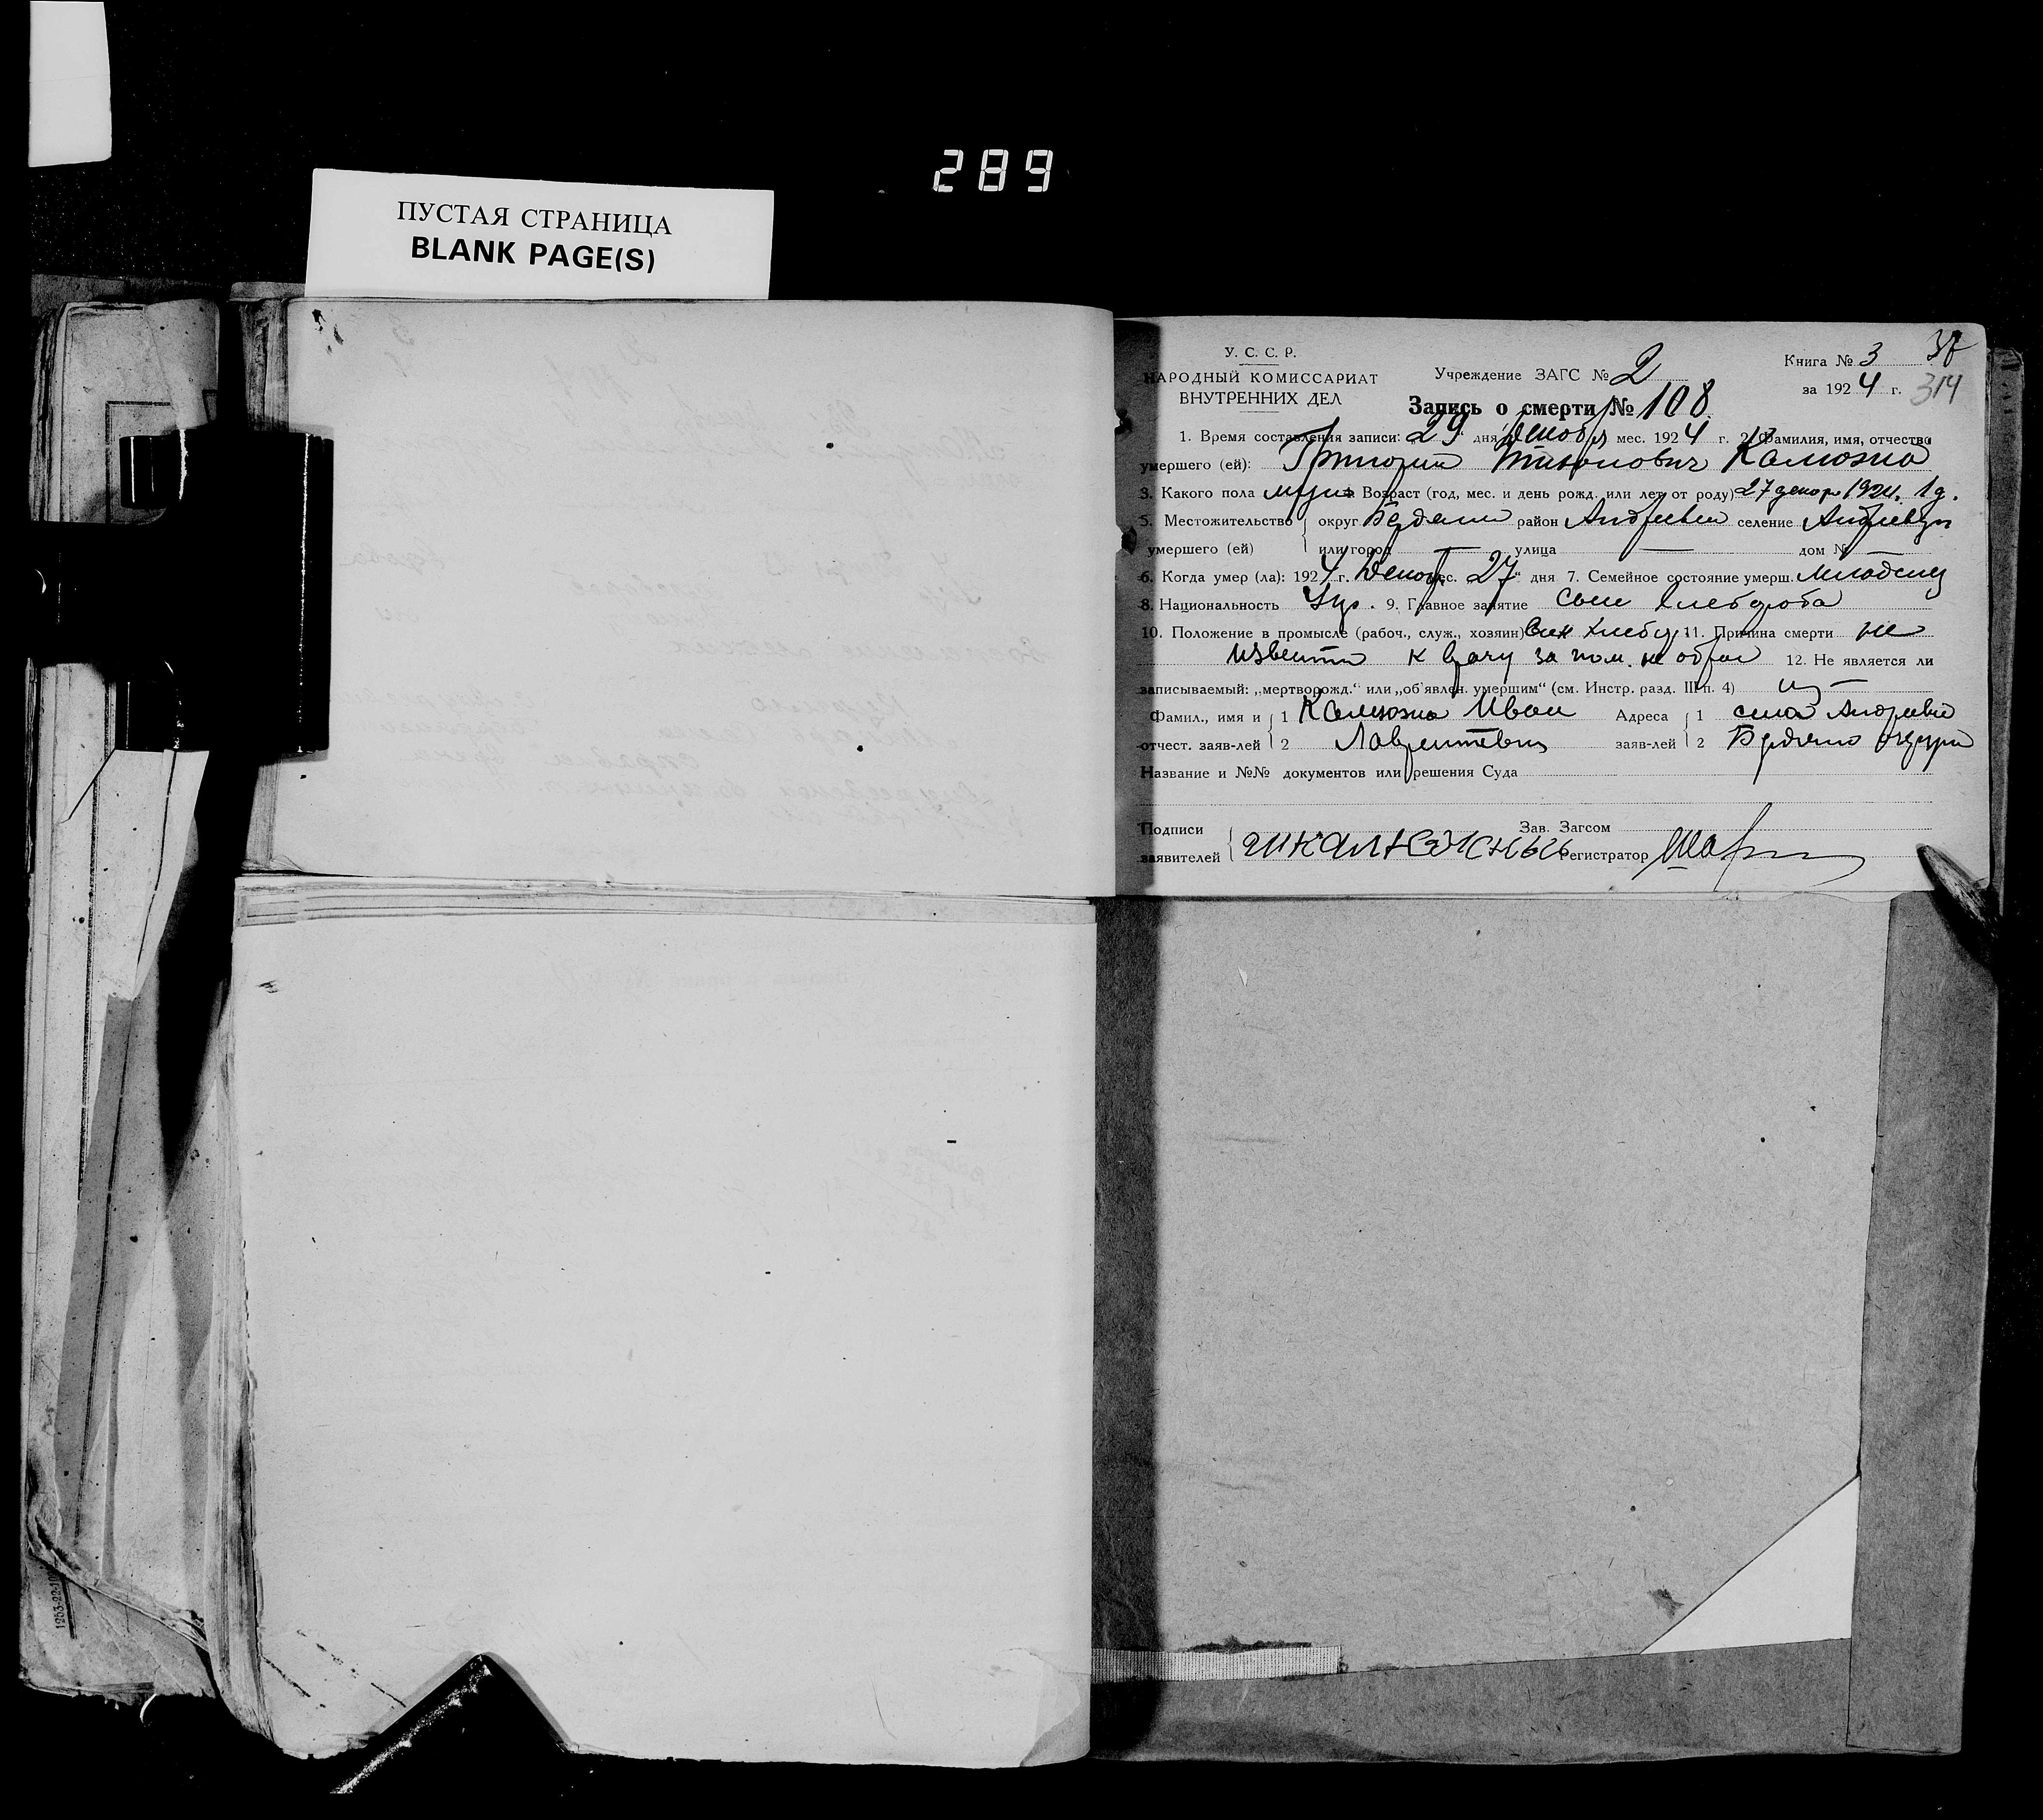 289
ПУСТАЯ СТРАНИЦА
BLANK PAGE(S)
У. С. С. Р.
НАРОДНЫЙ КОМИССАРИАТ
ВНУТРЕННИХ ДЕЛ
Учреждение ЗАГС № 2
Книга № 3 37
за 1924 г. 314
Запись о смерти № 108
1. Время составления записи: 29 дня Декабря мес. 1924 г. 2. Фамилия, имя, отчество
умершего (ей): Григорий Тихонович Калюжна
3. Какого пола муж 4. Возраст (год, мес. и день рожд. или лет от роду) 27 декор 1924. 1 д.
5. Местожительство округ Бердянс район Андреевск селение
умершего (ей) или город — улица — дом №
6. Когда умер (ла): 1924 г. Декабр мес. 27 „ дня 7. Семейное состояние умерш. Младенец
8. Национальность Укр. 9. Главное занятие сын хлебороба
10. Положение в промысле (рабоч., служ., хозяин) Сын хлебор 11. Причина смерти не
известна к врачу за пом. не обращ 12. Не является ли
записываемый: „мертворожд.“ или „об'явлен. умершим“ (см. Инстр. разд. III п. 4)
Фамил., имя и 1 Калюжна Иван Адреса 1 села Андреевки
отчест. заяв-лей 2 Лаврентьевич заяв-лей 2 Бердянс округи
Название и №№ документов или решения Суда
Подписи Зав. Загсом
заявителей Регистратор
1253-22-10